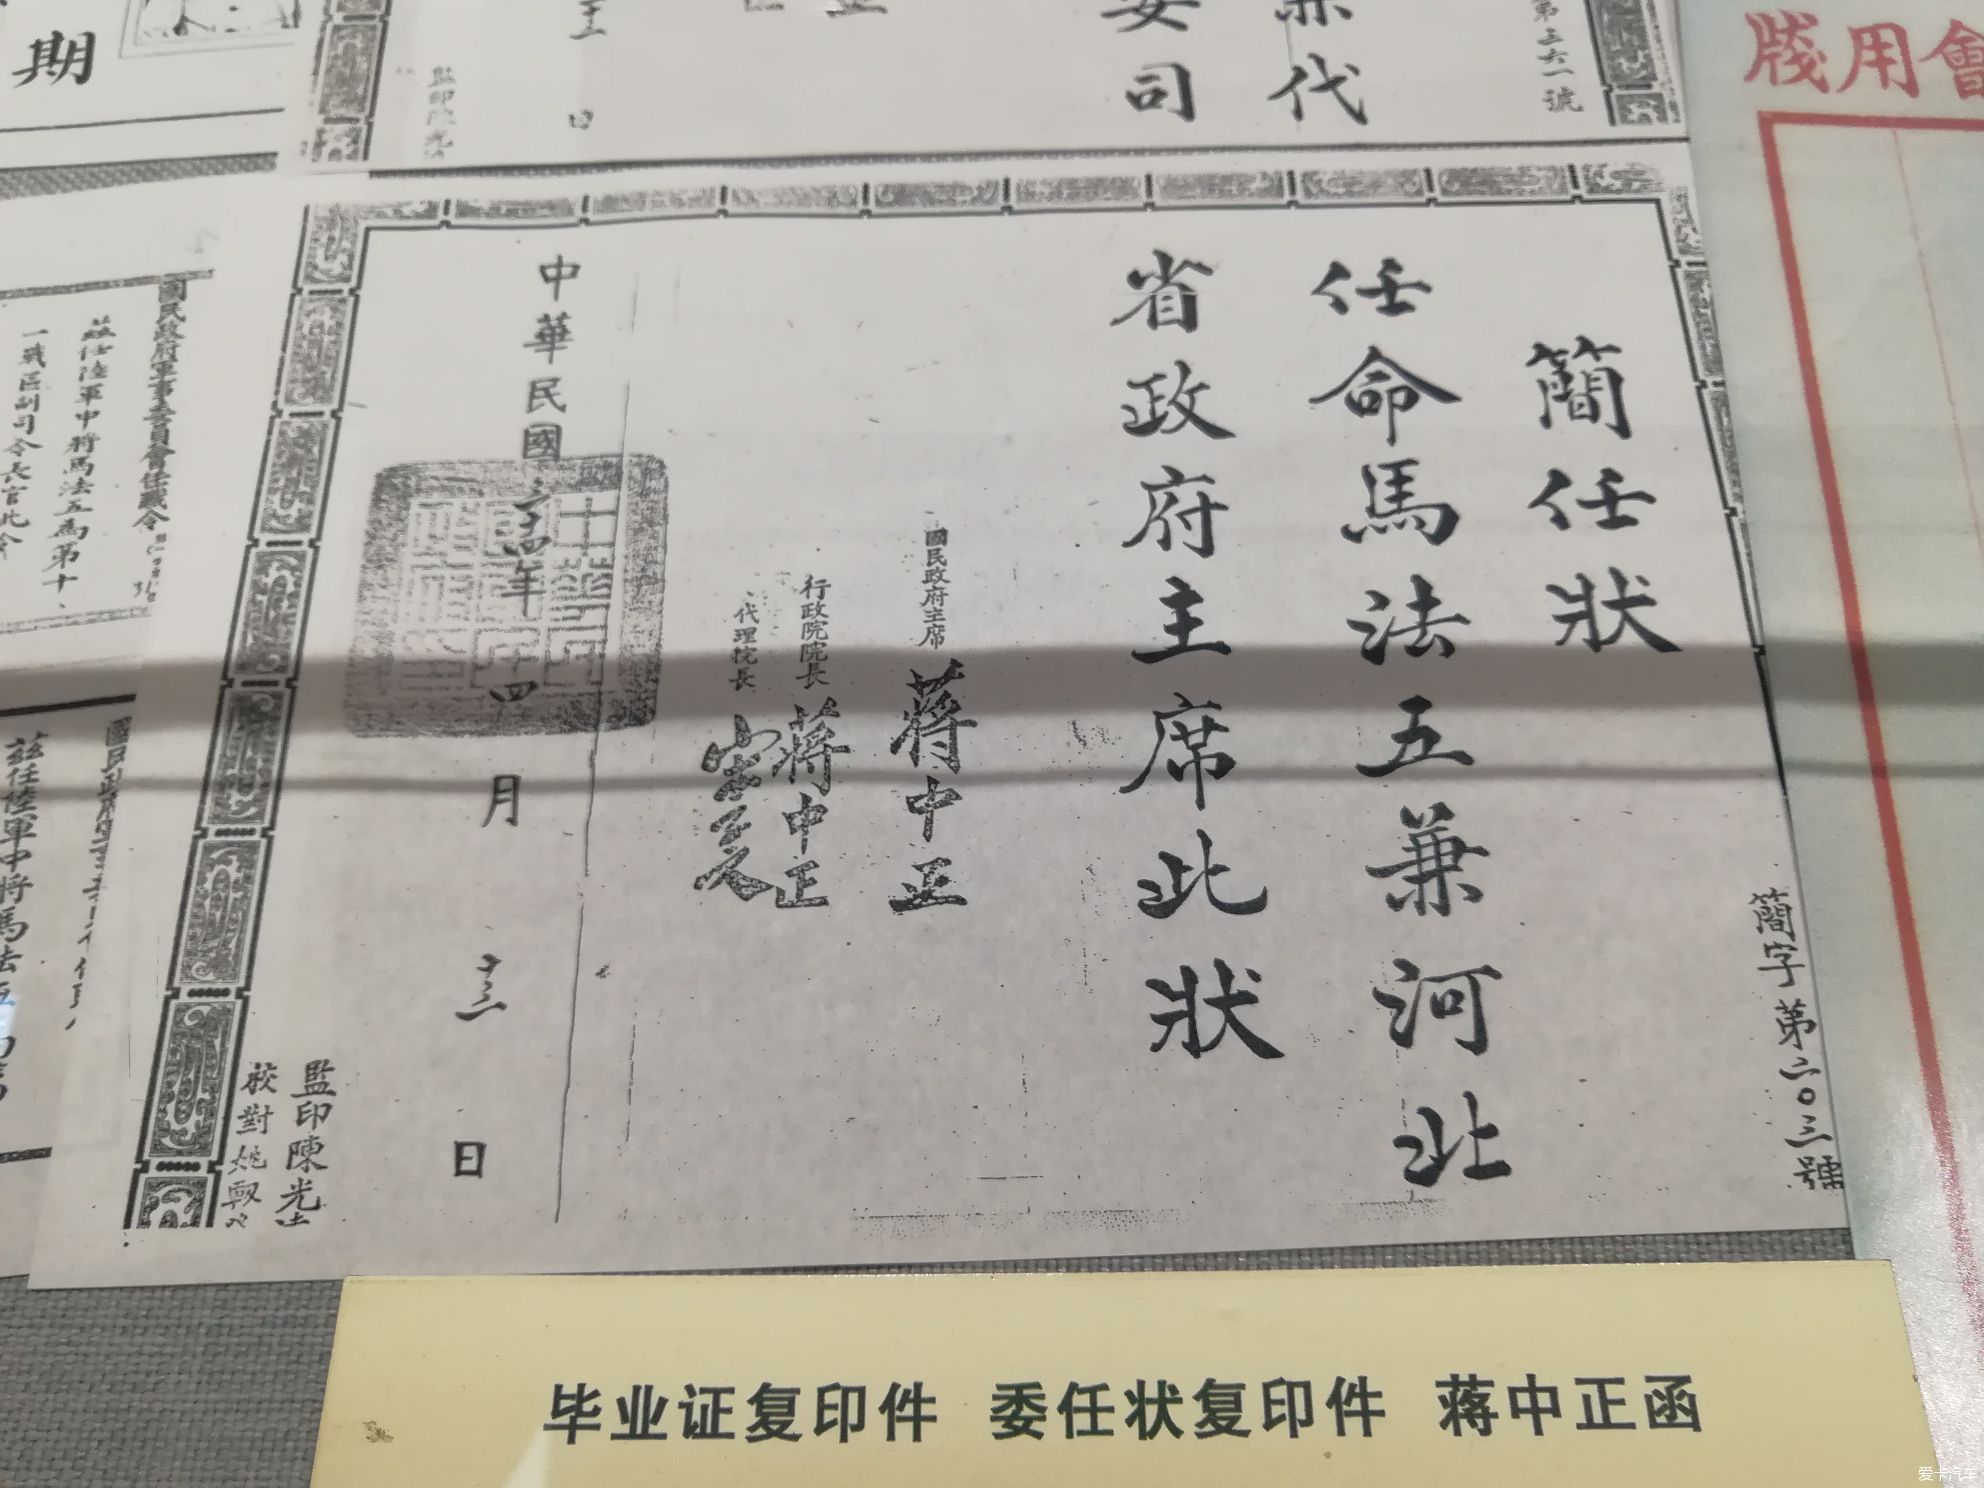 期
監印陳光
日
委司
兼代
第三六一號
牋用會
國民政府軍事委員會任職令
茲任陸軍中將馬法五為第十
一戰區副司令長官此令
茲任陸軍中將馬法五
簡字第二〇三號
簡任狀
任命馬法五兼河北
省政府主席此狀
國民政府主席 蔣中正
行政院院長 蔣中正
代理院長 宋子文
中華民國三十四年四月十三日
監印陳光
校對姚
毕业证复印件 委任状复印件 蒋中正函
爱卡汽车